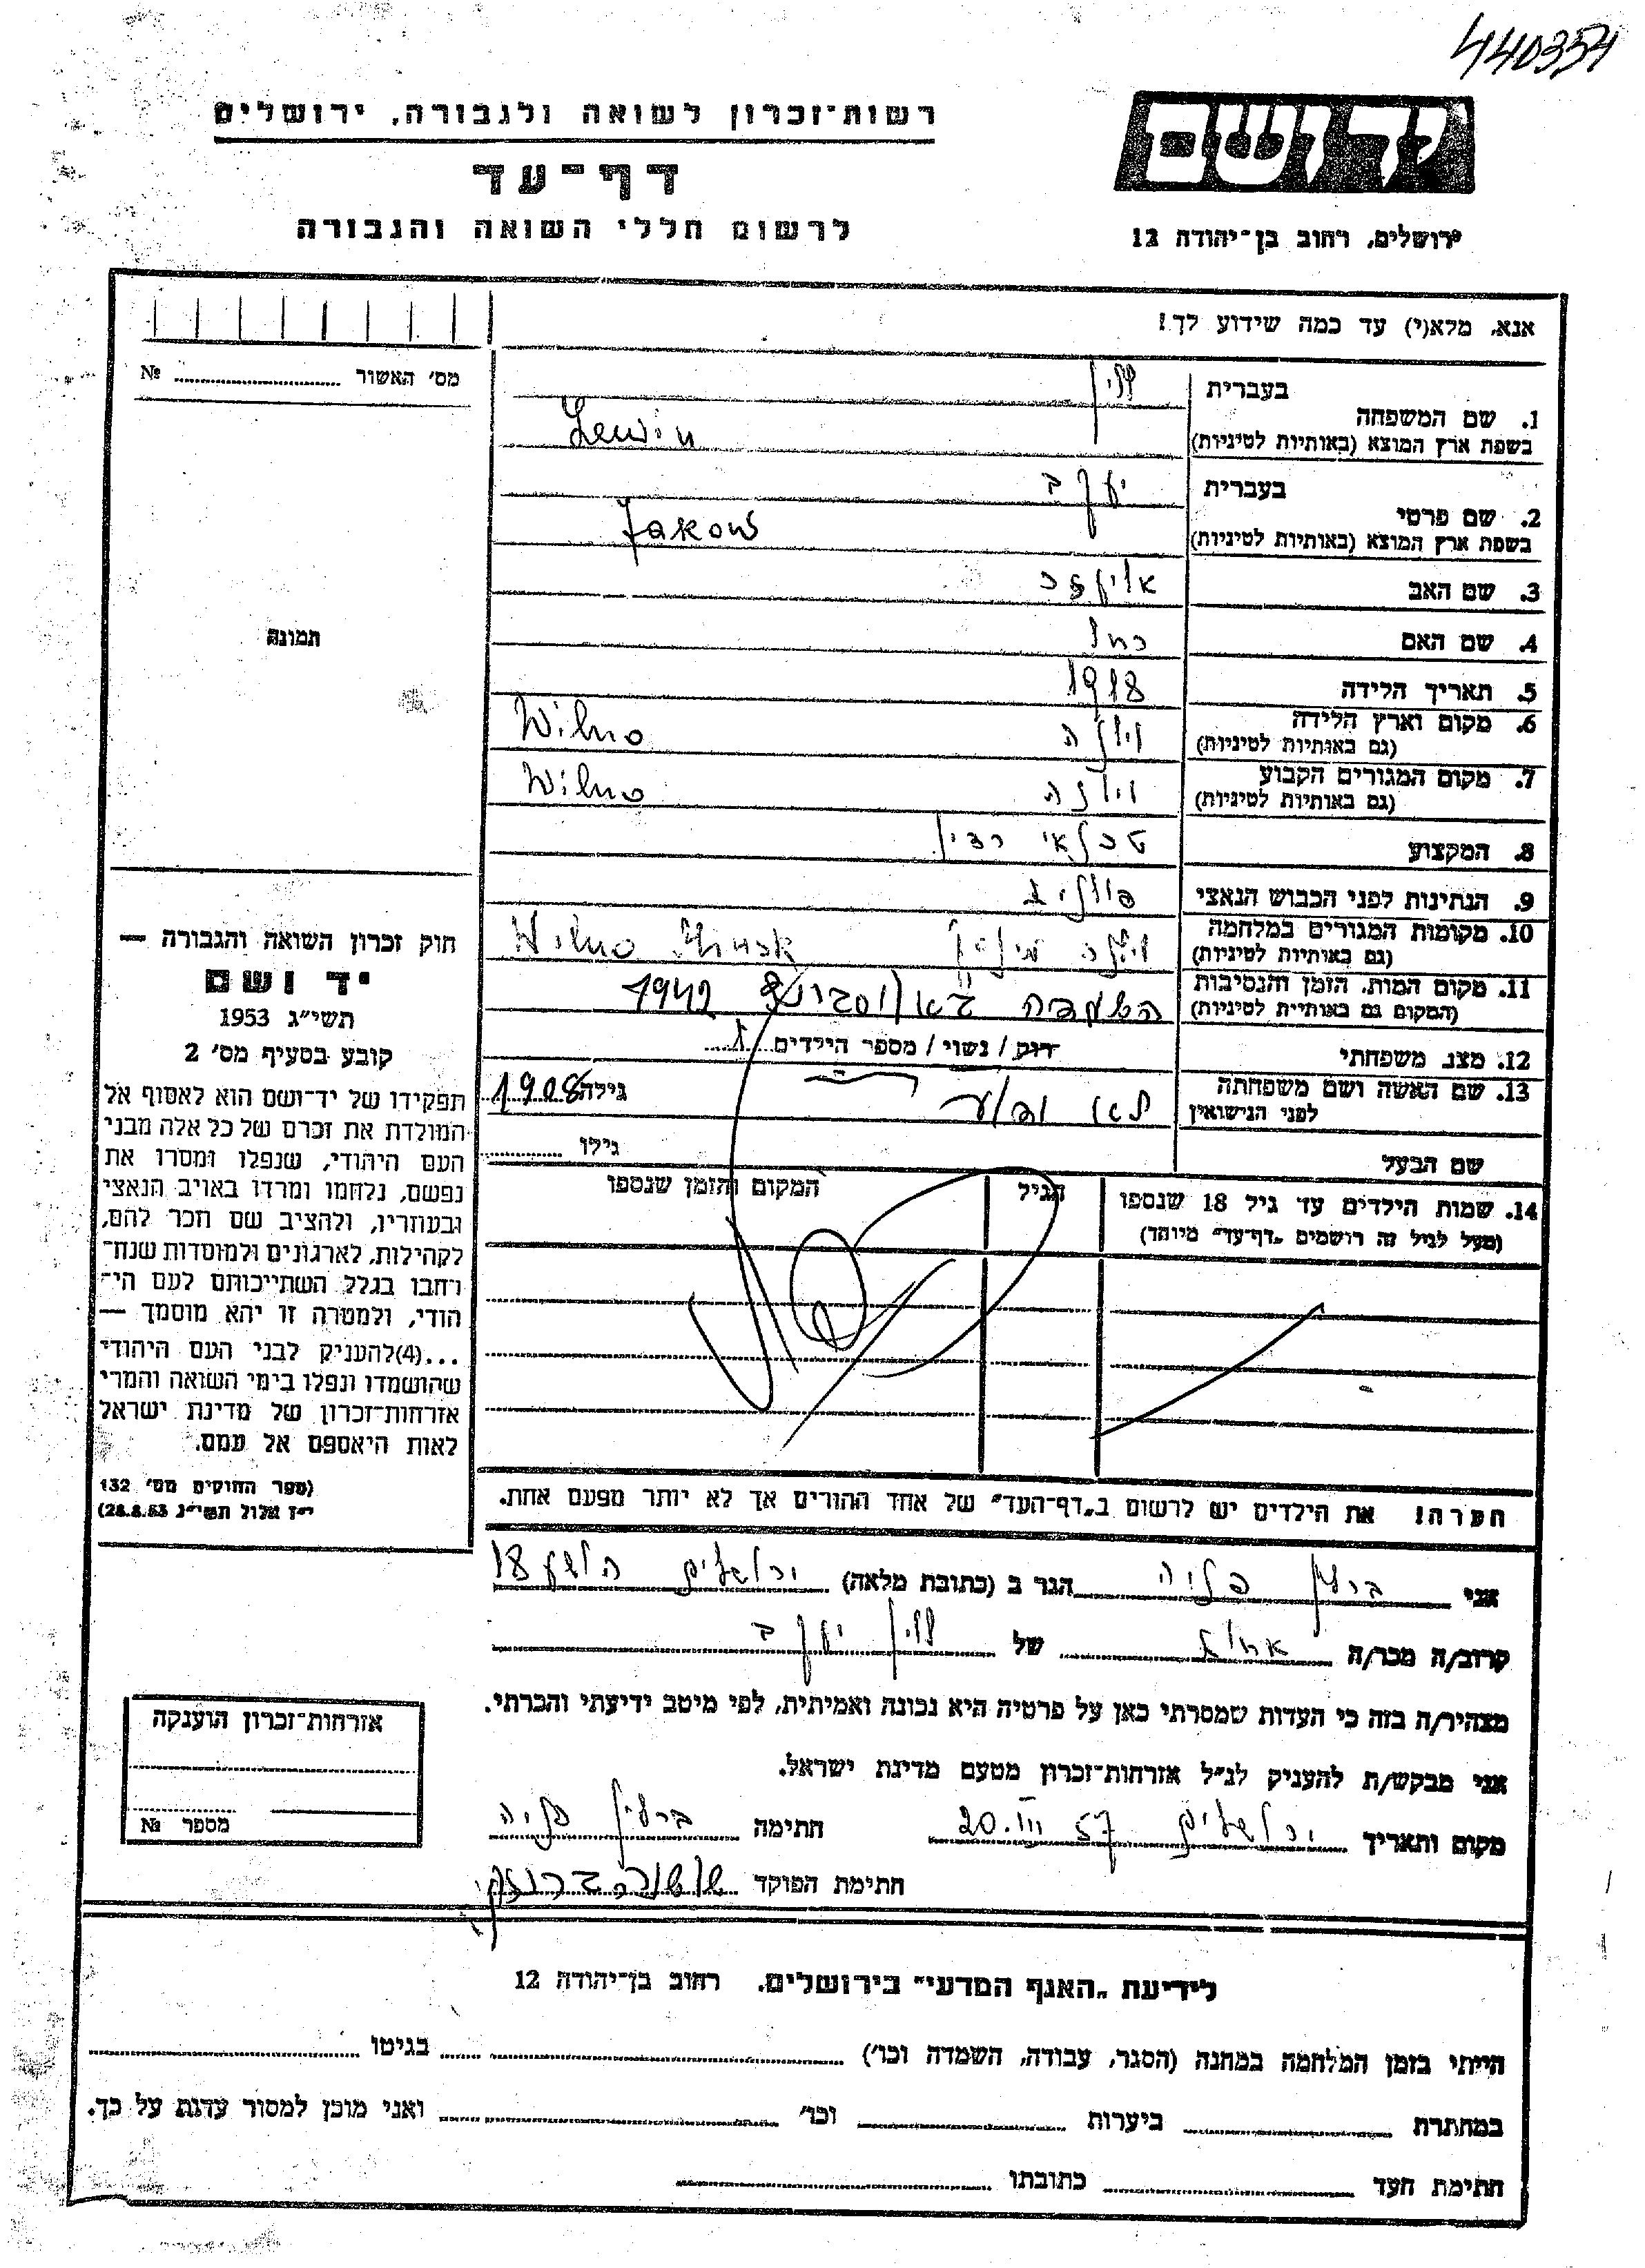 440354
רשות־זכרון לשואה ולגבורה, ירושלים
דף־עד
לרשום חללי השואה והגבורה
יד ושם
ירושלים, רחוב בן־יהודה 12
אנא, מלא(י) עד כמה שידוע לך!
מס׳ האשור № 
1. שם המשפחה
בעברית לוין
בשפת ארץ המוצא (באותיות לטיניות) Lewin
2. שם פרטי
בעברית יעקב
בשפת ארץ המוצא (באותיות לטיניות) Jakow
3. שם האב
4. שם האם רחל
5. תאריך הלידה 1918
6. מקום וארץ הלידה
(גם באותיות לטיניות) וילנה Wilno
7. מקום המגורים הקבוע
(גם באותיות לטיניות) וילנה Wilno
8. המקצוע טכנאי רדיו
9. הנתינות לפני הכבוש הנאצי פולנית
10. מקומות המגורים במלחמה
(גם באותיות לטיניות) וילנה מינסק Wilno Minsk
11. מקום המות, הזמן והנסיבות
(המקום גם באותיית לטיניות) 1942
12. מצב משפחתי רוק / נשוי / מספר הילדים
13. שם האשה ושם משפחתה
לפני הנישואין גילה 1908
שם הבעל גילו
14. שמות הילדים עד גיל 18 שנספו
(מעל לגיל זה רושמים „דף־עד״ מיוחד)
הגיל
המקום והזמן שנספו
תמונה
חוק זכרון השואה והגבורה —
יד ושם
תשי״ג 1953
קובע בסעיף מס׳ 2
תפקידו של יד־ושם הוא לאסוף אל
המולדת את זכרם של כל אלה מבני
העם היהודי, שנפלו ומסרו את
נפשם, נלחמו ומרדו באויב הנאצי
ובעוזריו, ולהציב שם וזכר להם,
לקהילות, לארגונים ולמוסדות שנח־
רחבו בגלל השתייכותם לעם הי־
הודי, ולמטרה זו יהא מוסמך —
...(4)להעניק לבני העם היהודי
שהושמדו ונפלו בימי השואה והמרי
אזרחות־זכרון של מדינת ישראל
לאות היאספם אל עמם.
(ספר החוקים מס׳ 132
י״ז אלול תשי״ג 28.8.53)
הערה! את הילדים יש לרשום ב„דף־העד״ של אחד ההורים אך לא יותר מפעם אחת.
אני הגר ב (כתובת מלאה) ירושלים 18
קרוב/ה מכר/ה אחות של לוין יעקב
מצהיר/ה בזה כי העדות שמסרתי כאן על פרטיה היא נכונה ואמיתית, לפי מיטב ידיעתי והכרתי.
אני מבקש/ת להעניק לנ״ל אזרחות־זכרון מטעם מדינת ישראל.
מקום ותאריך ירושלים 20.III 57 חתימה
חתימת הפוקד
אזרחות־זכרון הוענקה
מספר №
לידיעת „האגף המדעי״ בירושלים. רחוב בן־יהודה 12
הייתי בזמן המלחמה במחנה (הסגר, עבודה, השמדה וכו׳) בגיטו
במחתרת ביערות וכו׳ ואני מוכן למסור עדות על כך.
חתימת העד כתובתו